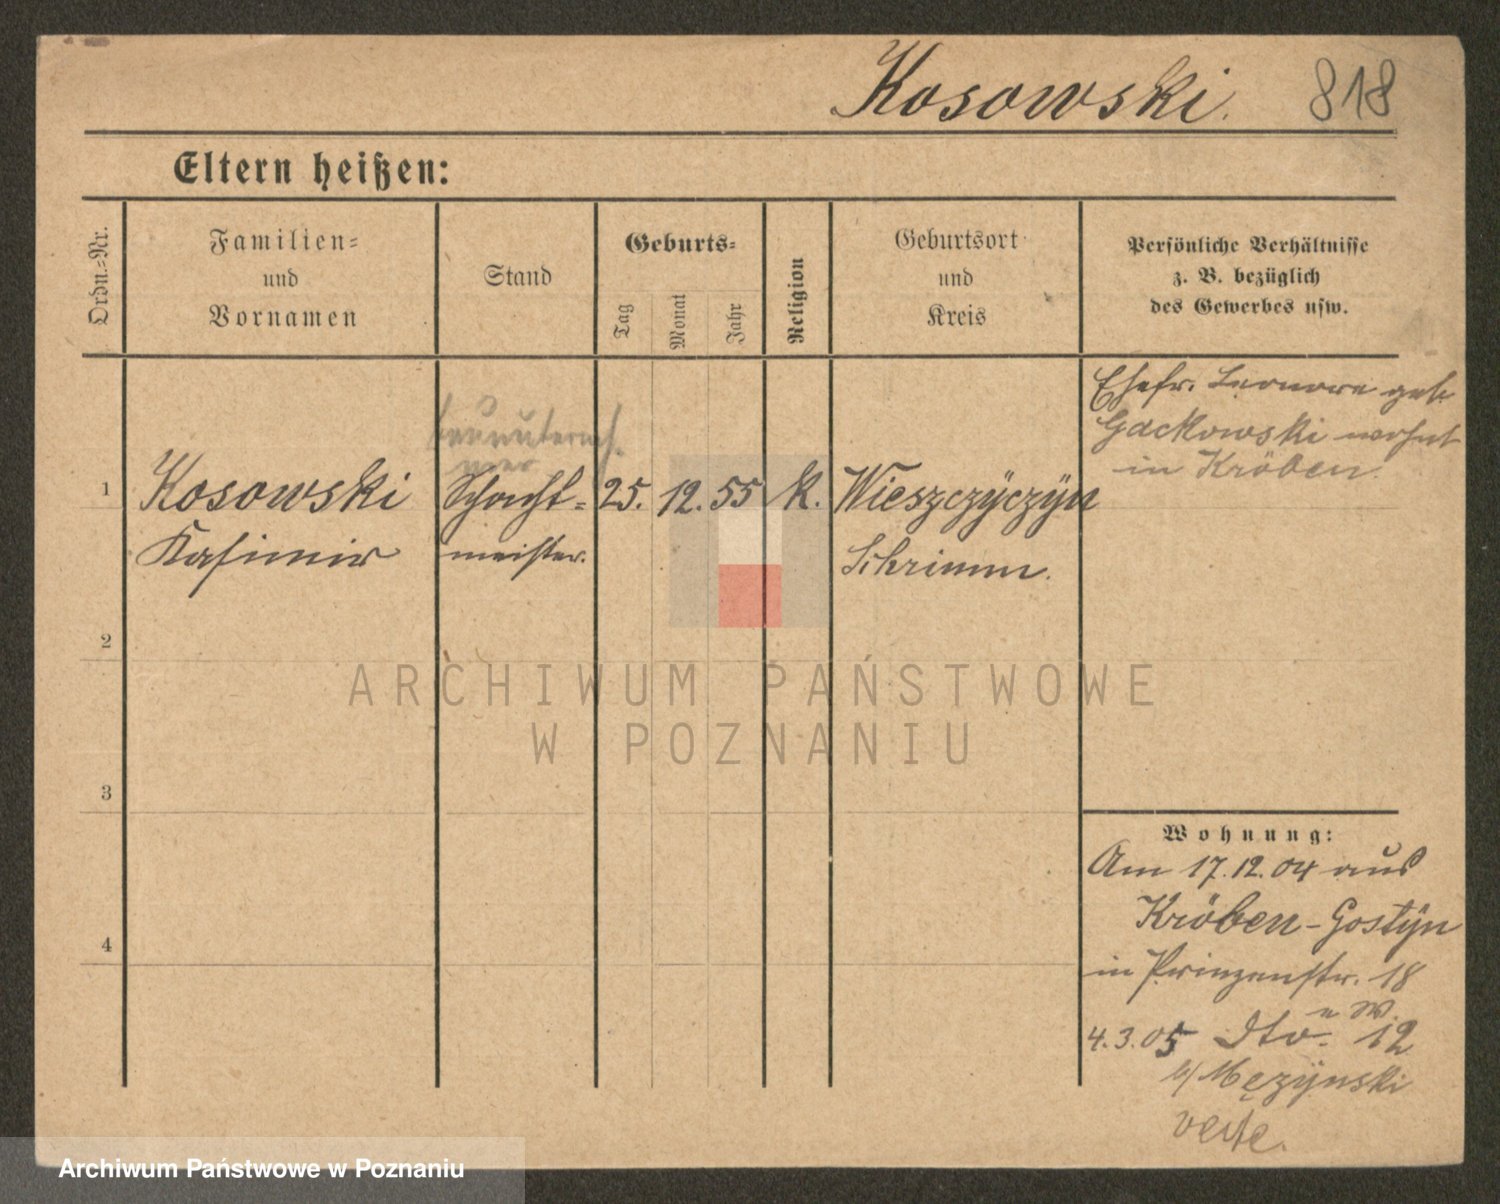 Kosowski. 818
Eltern heißen:
Ordn.-Nr.
Familien-
und
Vornamen
Stand
Geburts-
Tag
Monat
Jahr
Religion
Geburtsort
und
Kreis
Persönliche Verhältnisse
z. B. bezüglich
des Gewerbes usw.
1
Kosowski
Kasimir
Schacht-
meister.
25. 12. 55
k.
Wieszczÿczÿn
Schrimm.
Ehefr. Leonore geb.
Gackowski wohnt
in Kröben.
2
3
4
Wohnung:
Am 17.12.04 aus
Kröben-Gostÿn
in Prinzenstr. 18
4.3.05 Dto. 12
b/ Męzÿnski
verte.
ARCHIWUM PAŃSTWOWE
W POZNANIU
Archiwum Państwowe w Poznaniu